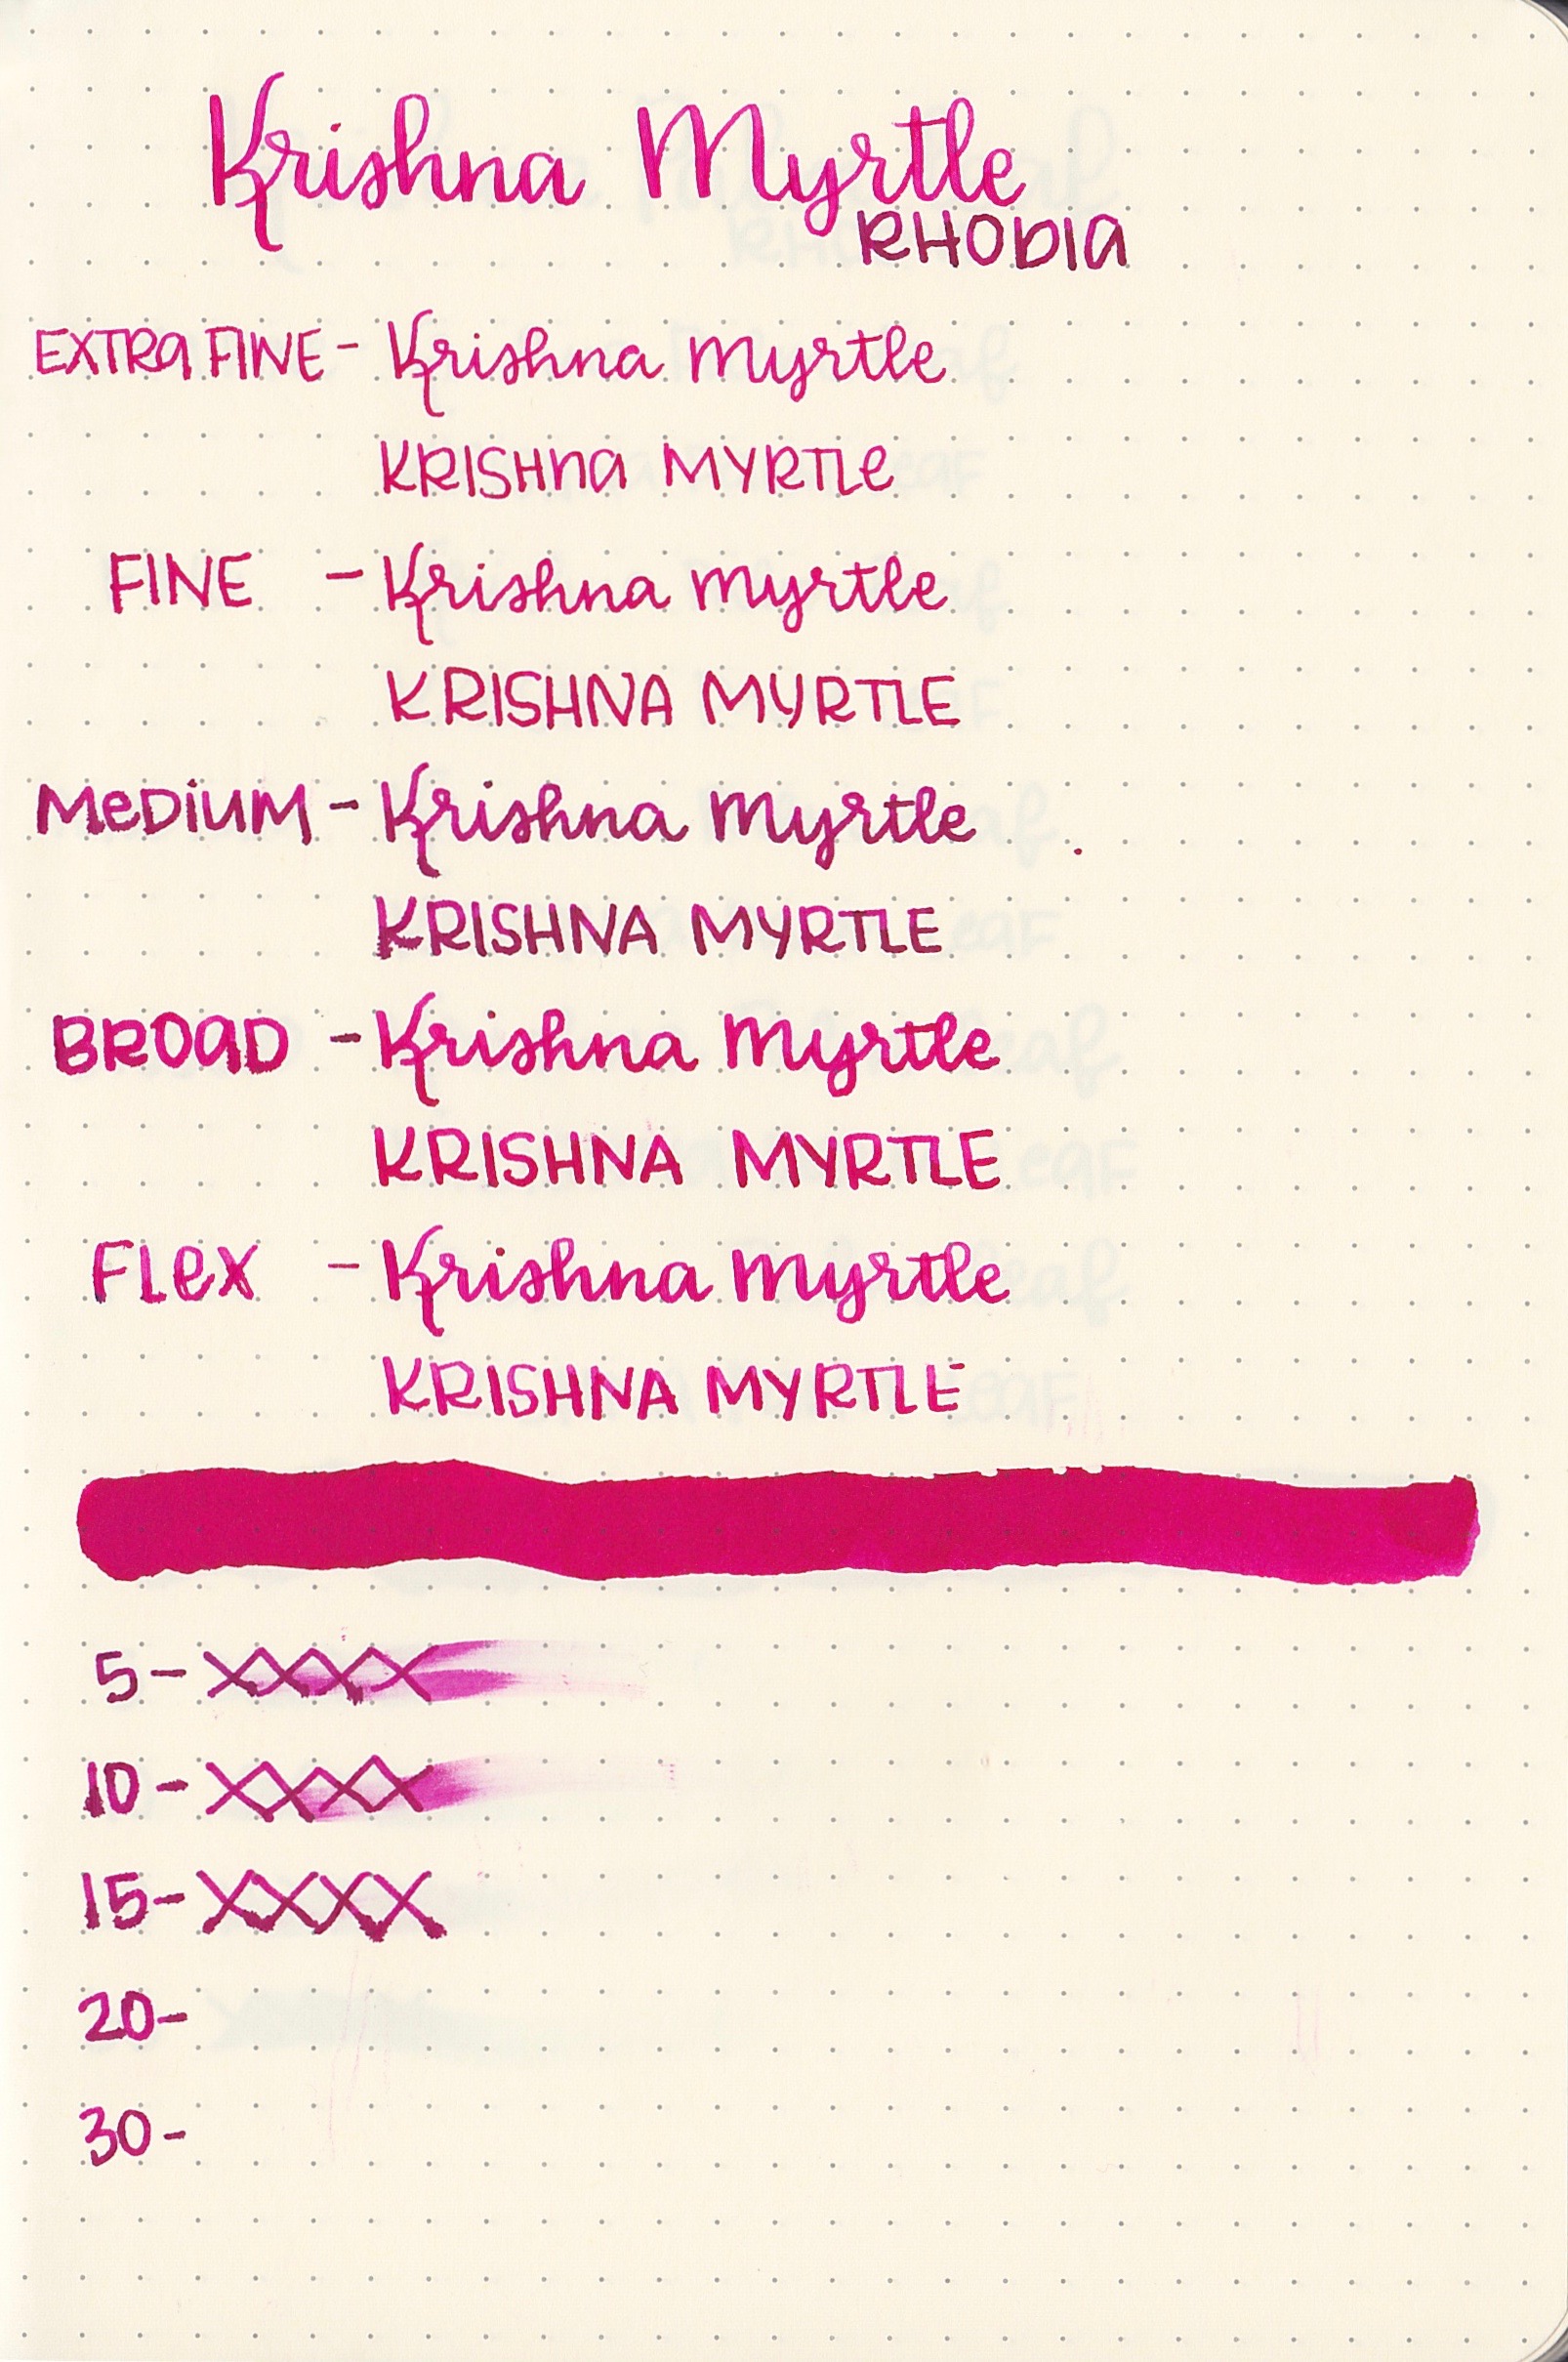 Krishna Myrtle
RHODIA
EXTRA FINE - Krishna Myrtle
KRISHNA MYRTLE
FINE - Krishna Myrtle
KRISHNA MYRTLE
MEDIUM - Krishna Myrtle
KRISHNA MYRTLE
BROAD - Krishna Myrtle
KRISHNA MYRTLE
FLEX - Krishna Myrtle
KRISHNA MYRTLE
5 - XXXX
10 - XXXX
15 - XXXX
20 -
30 -